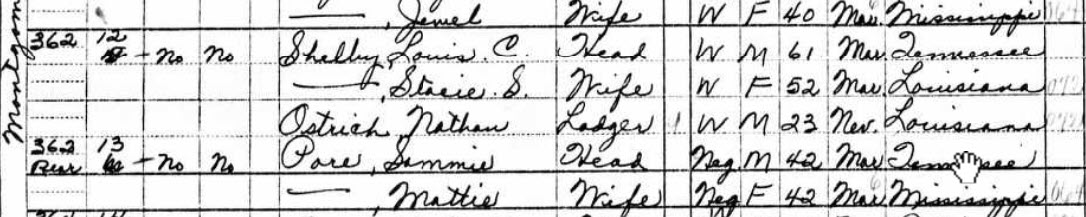 , Jewel Wife W F 40 Mar. Mississippi
362 12 - No No Shelby, Louis. C. Head W M 61 Mar. Tennessee
, Stacie. S. Wife W F 52 Mar. Louisiana
Ostrich, Nathan Lodger W M 23 Nev. Louisiana
362 13
Rear - No No Pore, Sammie Head Neg M 42 Mar
, Mattie Wife Neg F 42 Mar. Mississippi